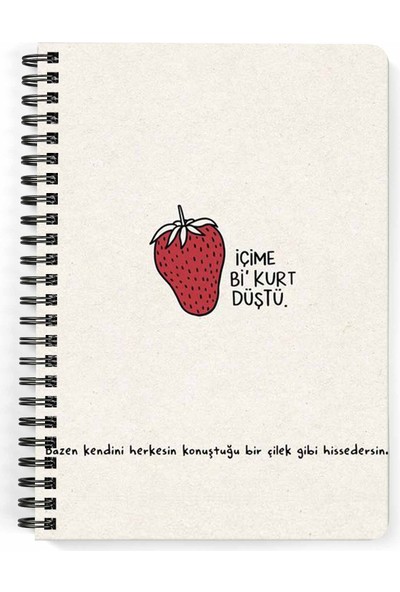 İÇİME
Bİ' KURT
DÜŞTÜ.
Bazen kendini herkesin konuştuğu bir çilek gibi hissedersin.